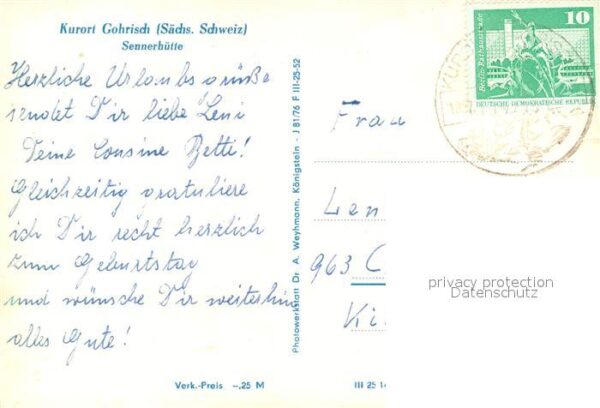 Kurort Gohrisch (Sächs. Schweiz)
Sennerhütte
Herzliche Urlaubsgrüße
sendet Dir liebe Leni
Deine Cousine Betti!
Gleichzeitig gratuliere
ich Dir recht herzlich
zum Geburtstag
und wünsche Dir weiterhin
alles Gute!
Verk.-Preis -,25 M
Photowerkstatt Dr. A. Weyhmann, Königstein - J 81/76 F III-25-52
10
Berlin, Rathausstraße
DEUTSCHE DEMOKRATISCHE REPUBLIK
Frau
Len
963 C
Ki
III 25 14
privacy protection
Datenschutz